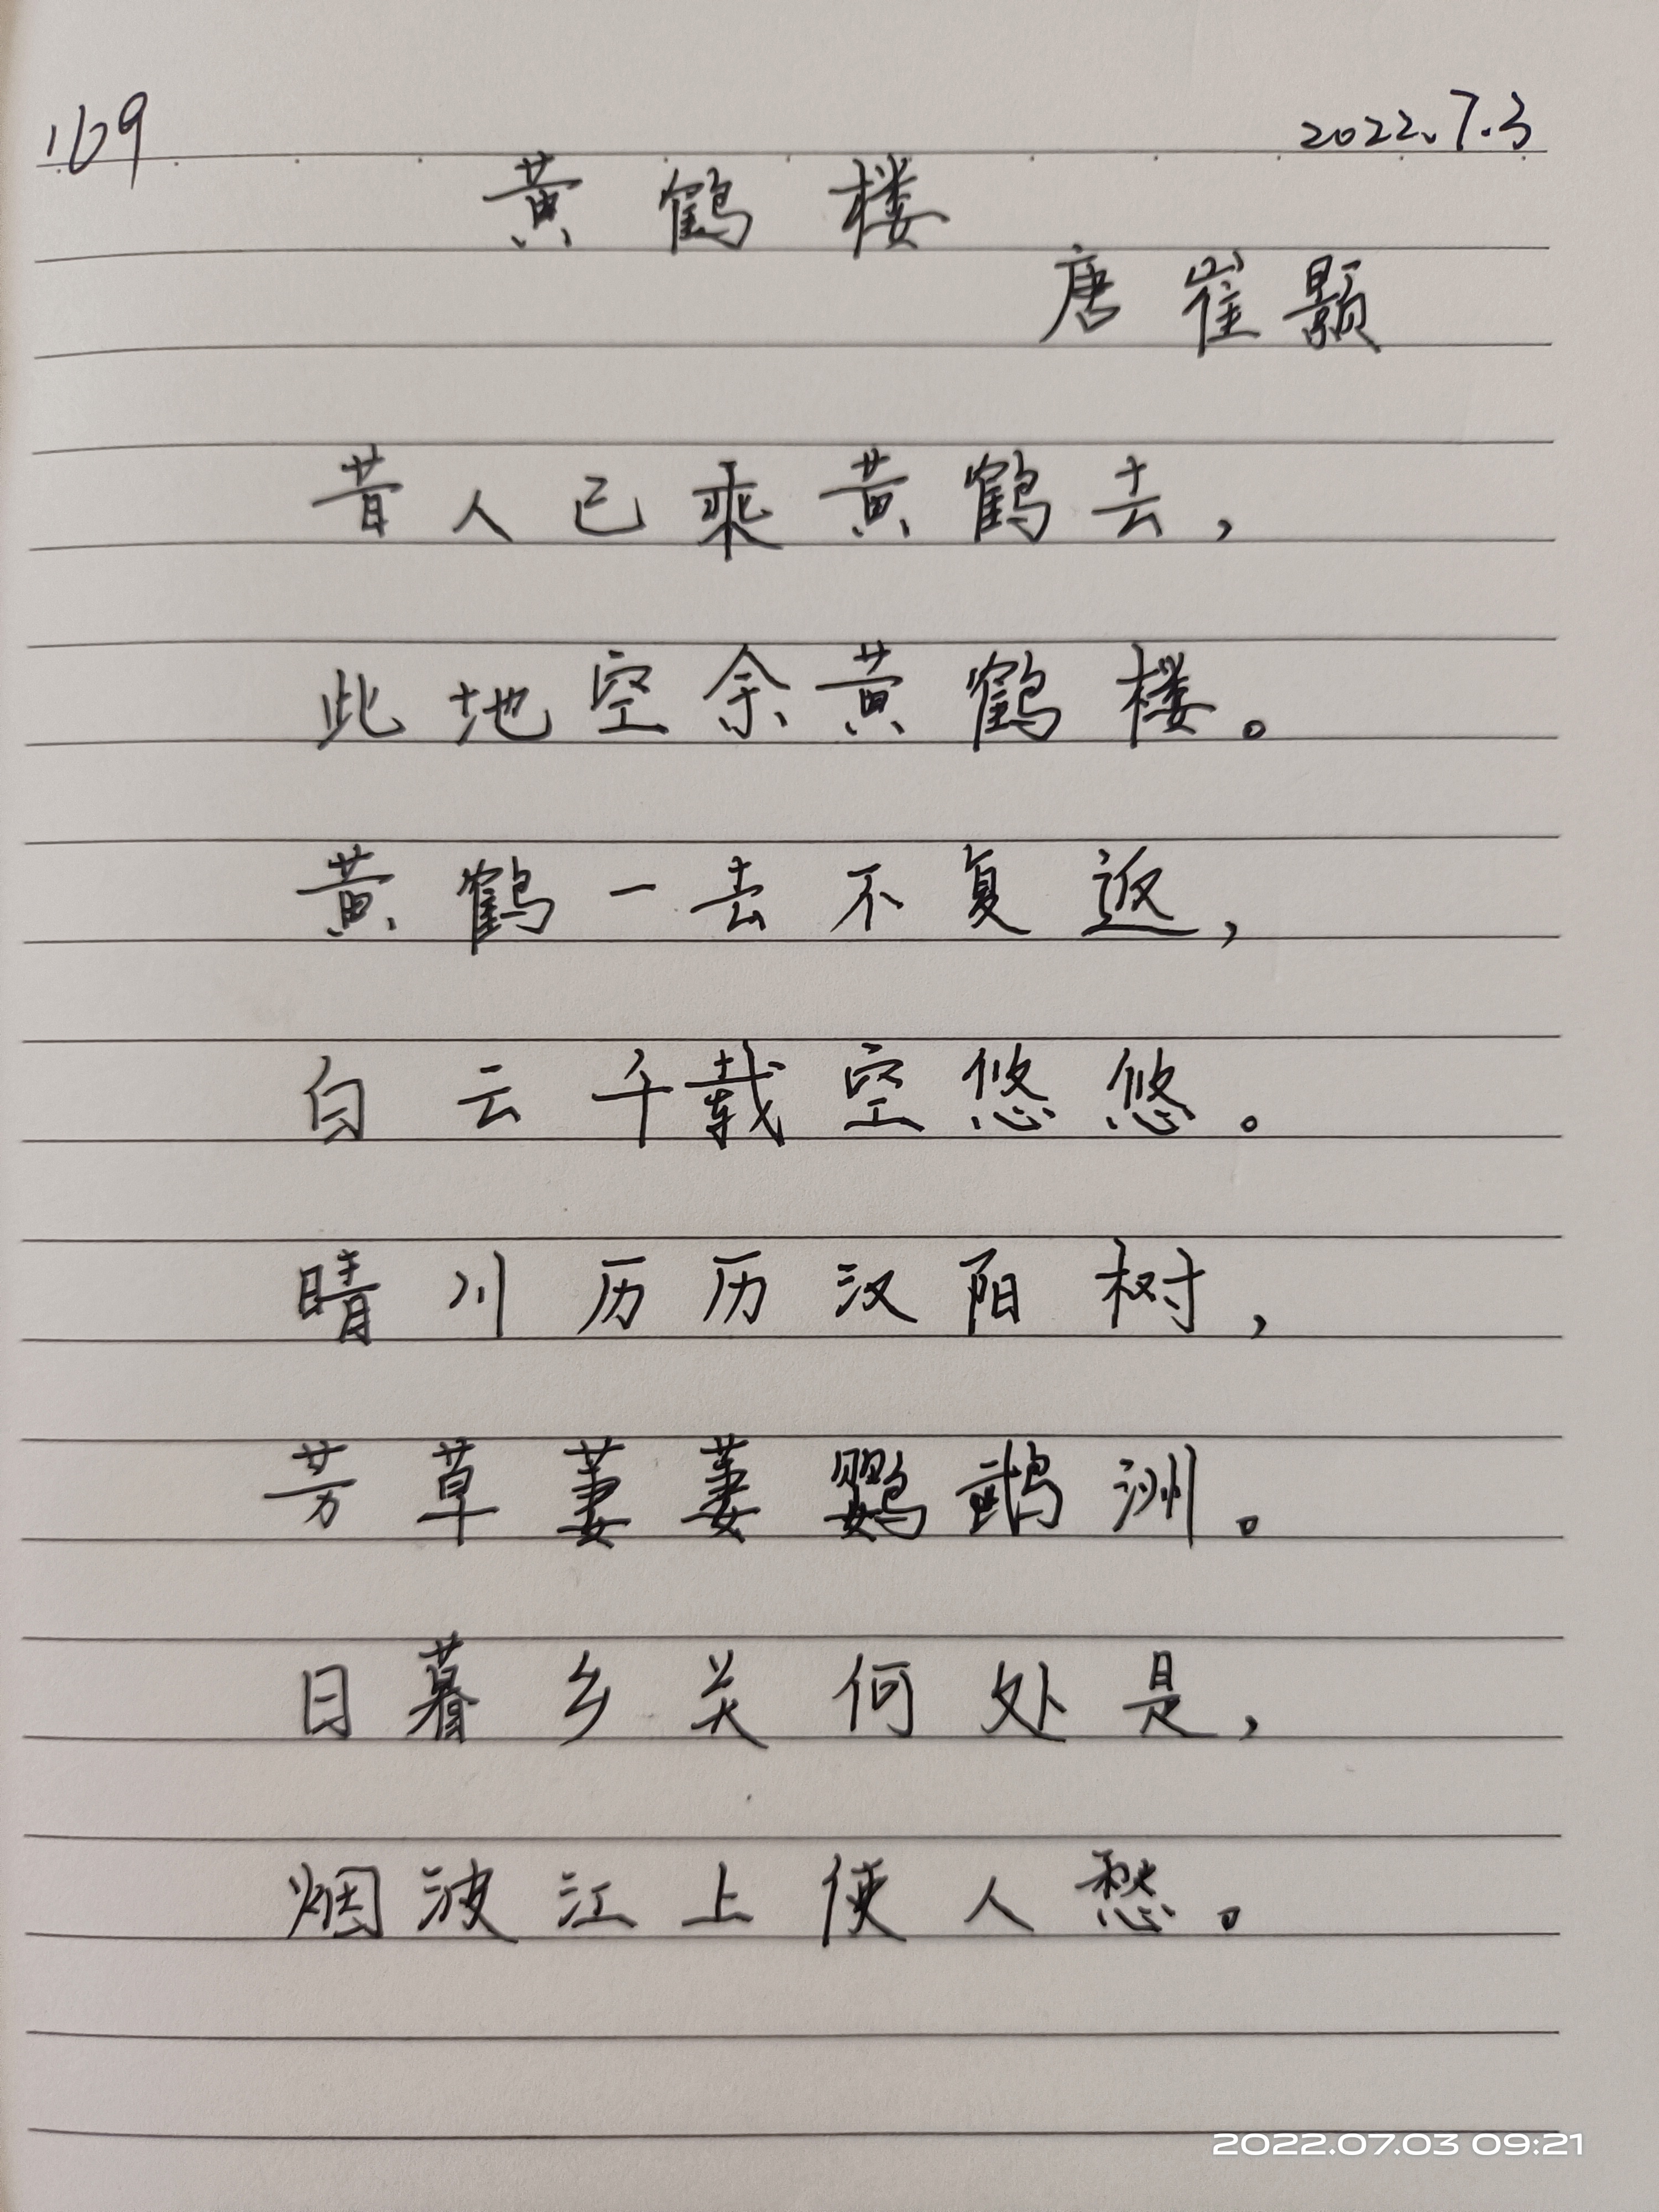 169
2022.7.3
黄鹤楼
唐崔颢
昔人已乘黄鹤去，
此地空余黄鹤楼。
黄鹤一去不复返，
白云千载空悠悠。
晴川历历汉阳树，
芳草萋萋鹦鹉洲。
日暮乡关何处是，
烟波江上使人愁。
2022.07.03 09:21